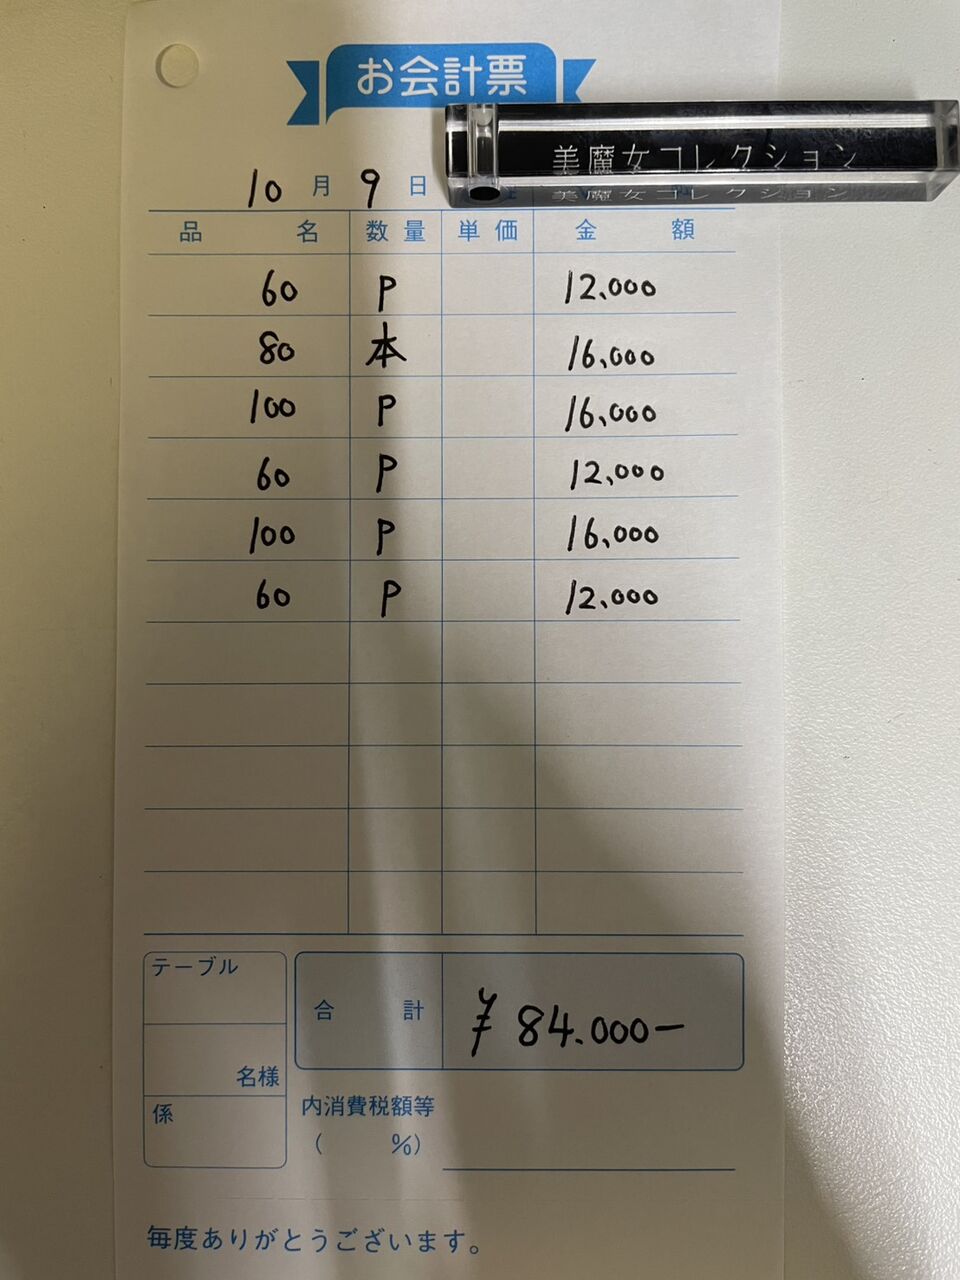 お会計票
美魔女コレクション
美魔女コレクション
10月9日
品名 数量 単価 金額
60 P 12,000
80 本 16,000
100 P 16,000
60 P 12,000
100 P 16,000
60 P 12,000
テーブル
合計 ¥84.000-
名様
係
内消費税額等
( %)
毎度ありがとうございます。